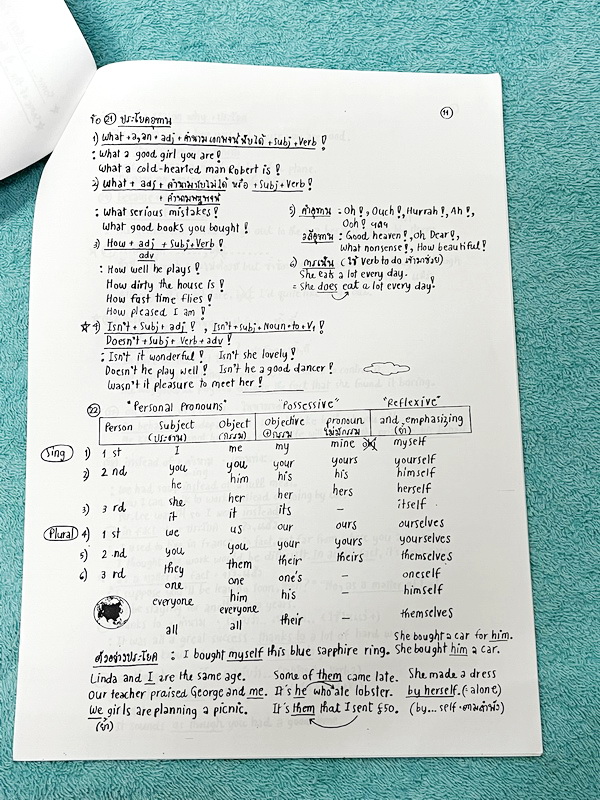 ข้อ 21 ประโยคอุทาน
11
1) What + a, an + adj + คำนามเอกพจน์นับได้ + Subj + Verb !
: What a good girl you are !
What a cold-hearted man Robert is !
2) What + adj + คำนามนับไม่ได้ หรือ + Subj + Verb !
+ คำนามพหูพจน์
: What serious mistakes !
What good books you bought !
3) How + adj + Subj + Verb !
adv
: How well he plays !
How dirty the house is !
How fast time flies !
How pleased I am !
5) คำอุทาน : Oh !, Ouch !, Hurrah !, Ah !,
Ooh ! ฯลฯ
วลีอุทาน : Good heaven !, Oh Dear !,
What nonsense !, How beautiful !
6) การเน้น ( ใช้ Verb to do เข้ามาช่วย)
She eats a lot every day.
= She does eat a lot every day!
4) Isn't + Subj + adj ! , Isn't + Subj + Noun + to + V1 !
Doesn't + Subj + Verb + adv !
: Isn't it wonderful ! Isn't she lovely !
Doesn't he play well ! Isn't he a good dancer !
Wasn't it pleasure to meet her !
22 "Personal Pronouns" "Possessive" "Reflexive"
Person Subject Object Objective pronoun and emphasizing
(ประธาน) (กรรม) กรรม ไม่มีกรรม (ย้ำ)
Sing 1) 1 st I me my mine myself
2) 2 nd you you your yours yourself
he him his his himself
3) 3 rd she her her hers herself
it it its – itself
Plural 4) 1 st we us our ours ourselves
5) 2 nd you you your yours yourselves
6) 3 rd they them their theirs themselves
one one one's – oneself
everyone everyone his – himself
him
all all their – themselves
She bought a car for him.
ตัวอย่างประโยค : I bought myself this blue sapphire ring. She bought him a car.
Linda and I are the same age. Some of them came late. She made a dress
Our teacher praised George and me. It's he who ate lobster. by herself. (= alone)
We girls are planning a picnic. It's them that I sent £50. (by... self = ตามลำพัง)
(ย้ำ)